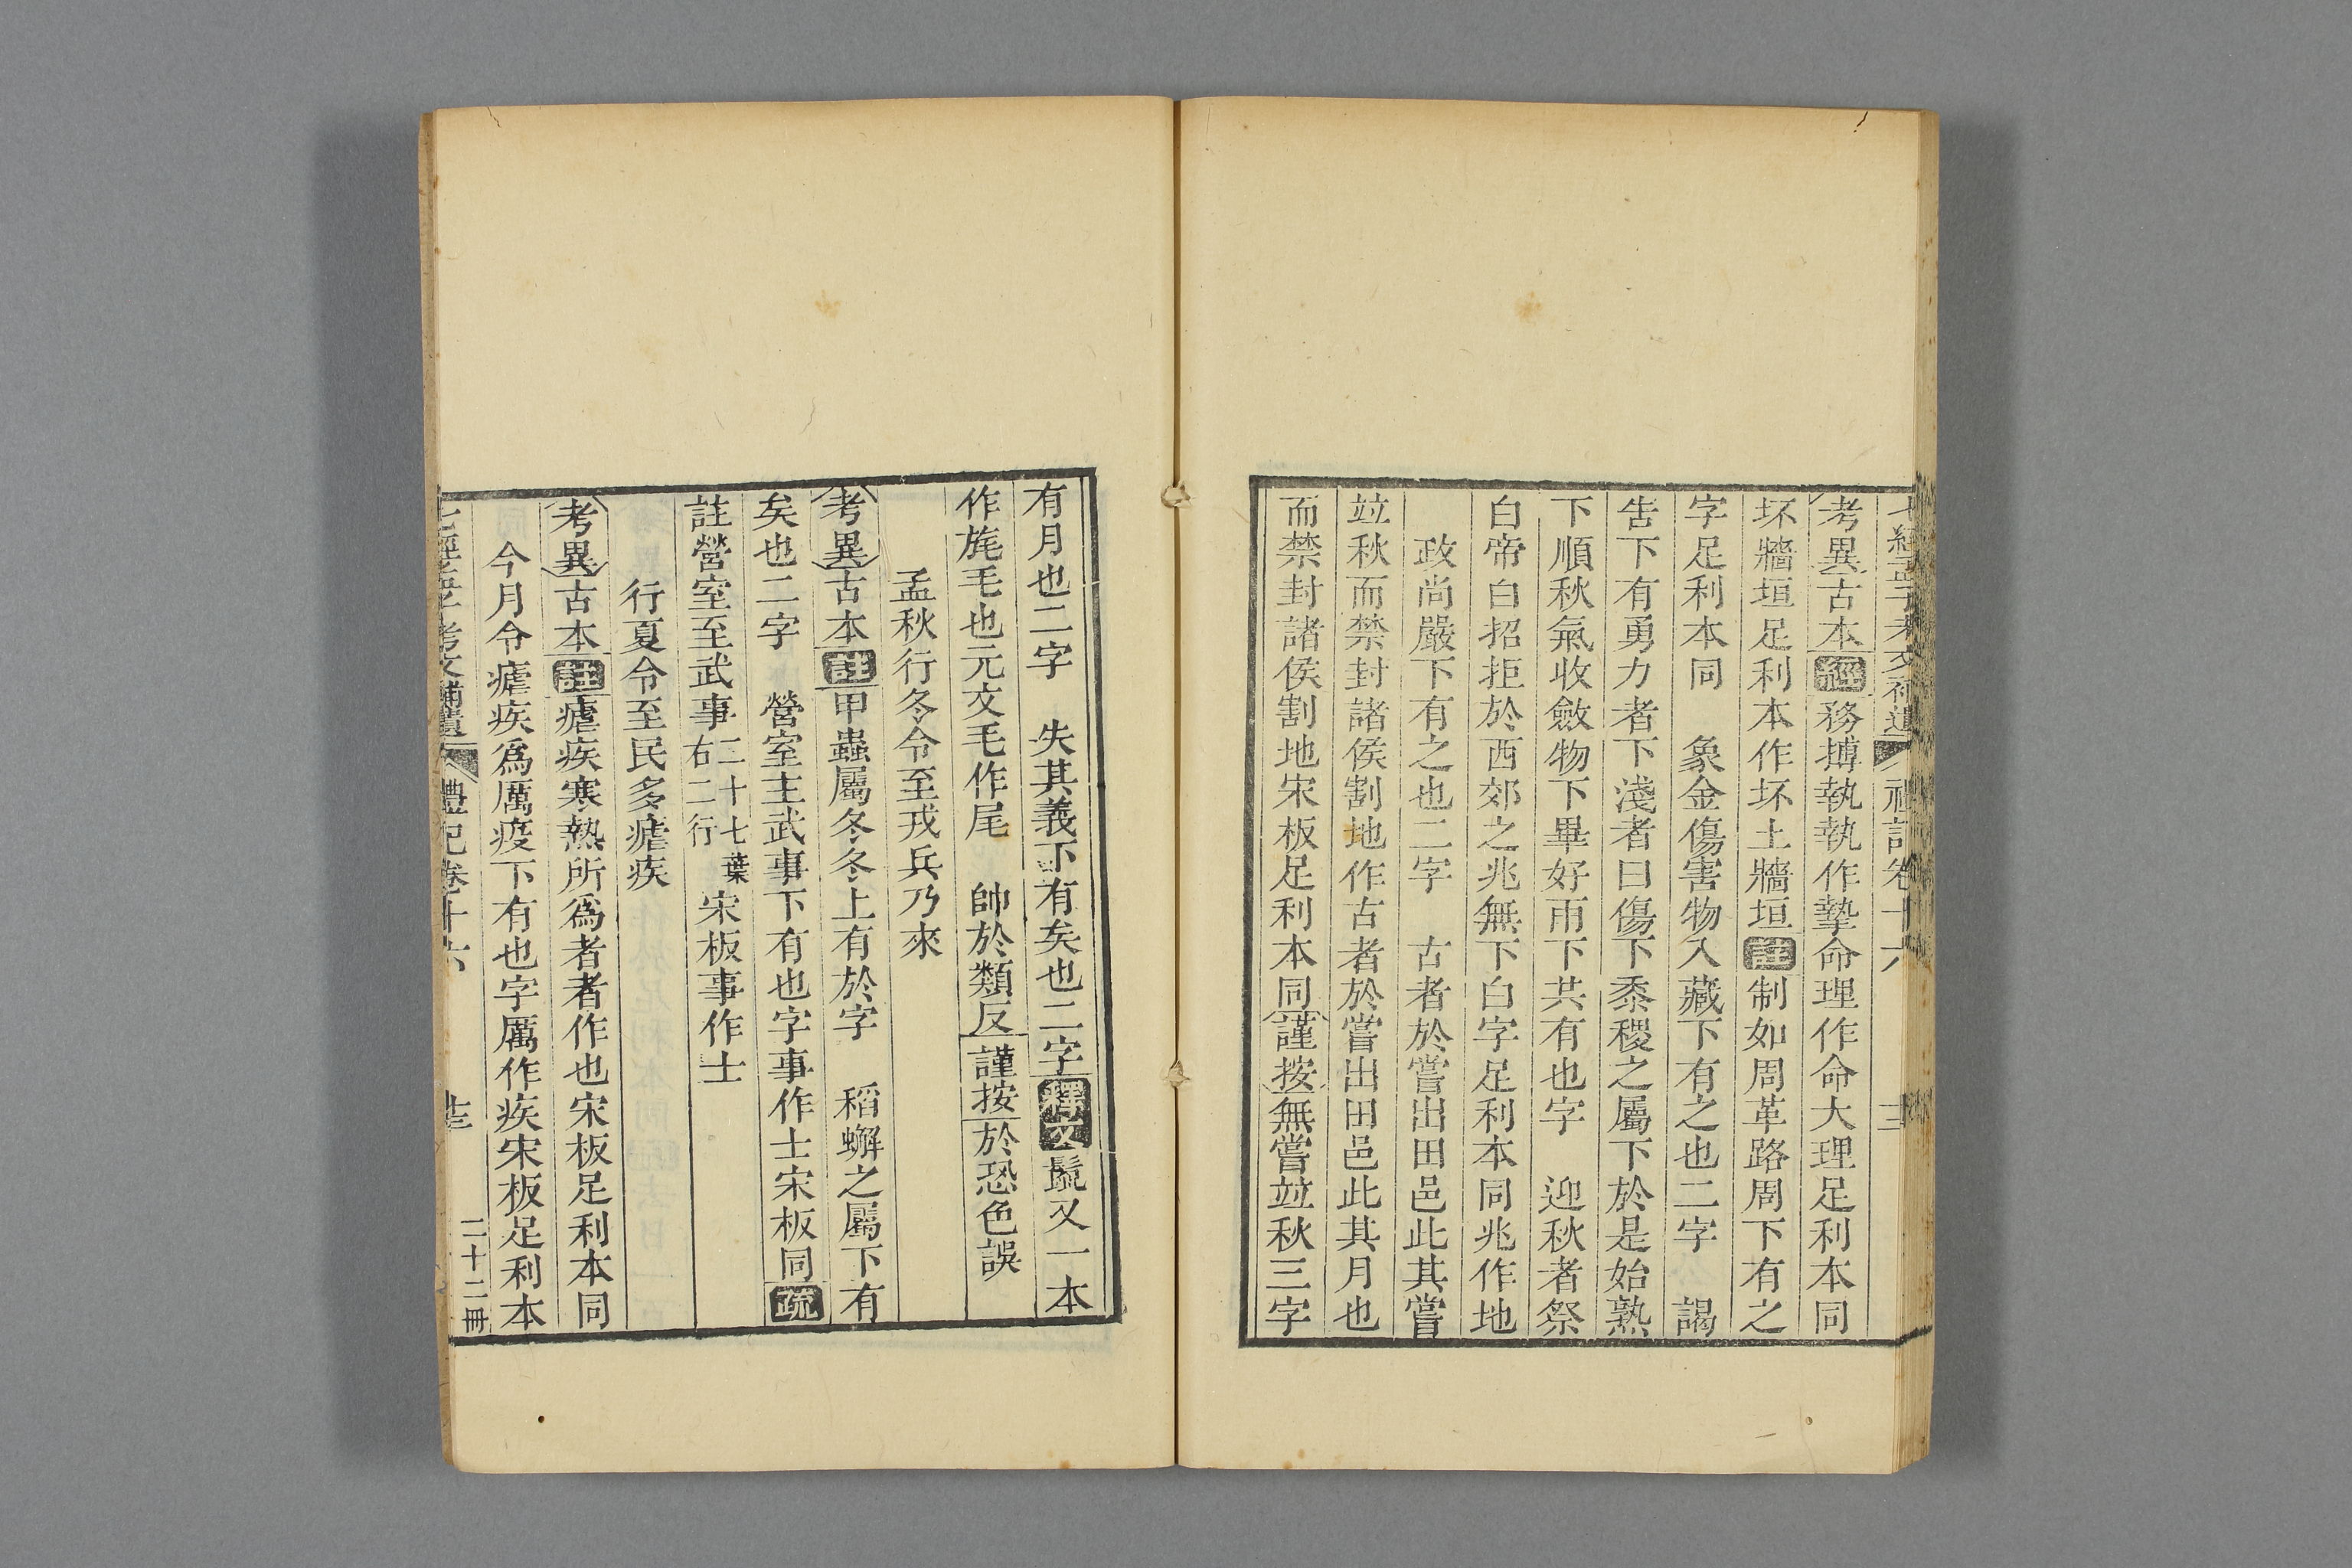 七經孟子考文補遺 禮記卷十六
考異古本經務搏執執作摯命理作命大理足利本同
坏牆垣足利本作坏土牆垣註制如周革路周下有之
字足利本同 象金傷害物入藏下有之也二字 謁
告下有勇力者下淺者曰傷下黍稷之屬下於是始熟
下順秋氣收斂物下畢好雨下共有也字 迎秋者祭
白帝白招拒於西郊之兆無下白字足利本同兆作地
政尚嚴下有之也二字 古者於嘗出田邑此其嘗
竝秋而禁封諸侯割地作古者於嘗出田邑此其月也
而禁封諸侯割地宋板足利本同謹按無嘗竝秋三字
有月也二字 失其義下有矣也二字釋文髦又一本
作旄毛也元文毛作尾 帥於類反謹按於恐色誤
孟秋行冬令至戎兵乃來
考異古本註甲蟲屬冬冬上有於字 稻蠏之屬下有
矣也二字 營室主武事下有也字事作士宋板同疏
註營室至武事二十七葉右二行宋板事作士
行夏令至民多瘧疾
考異古本註瘧疾寒熱所爲者者作也宋板足利本同
今月令瘧疾爲厲疫下有也字厲作疾宋板足利本
七經孟子考文補遺 禮記卷十六 二十二冊